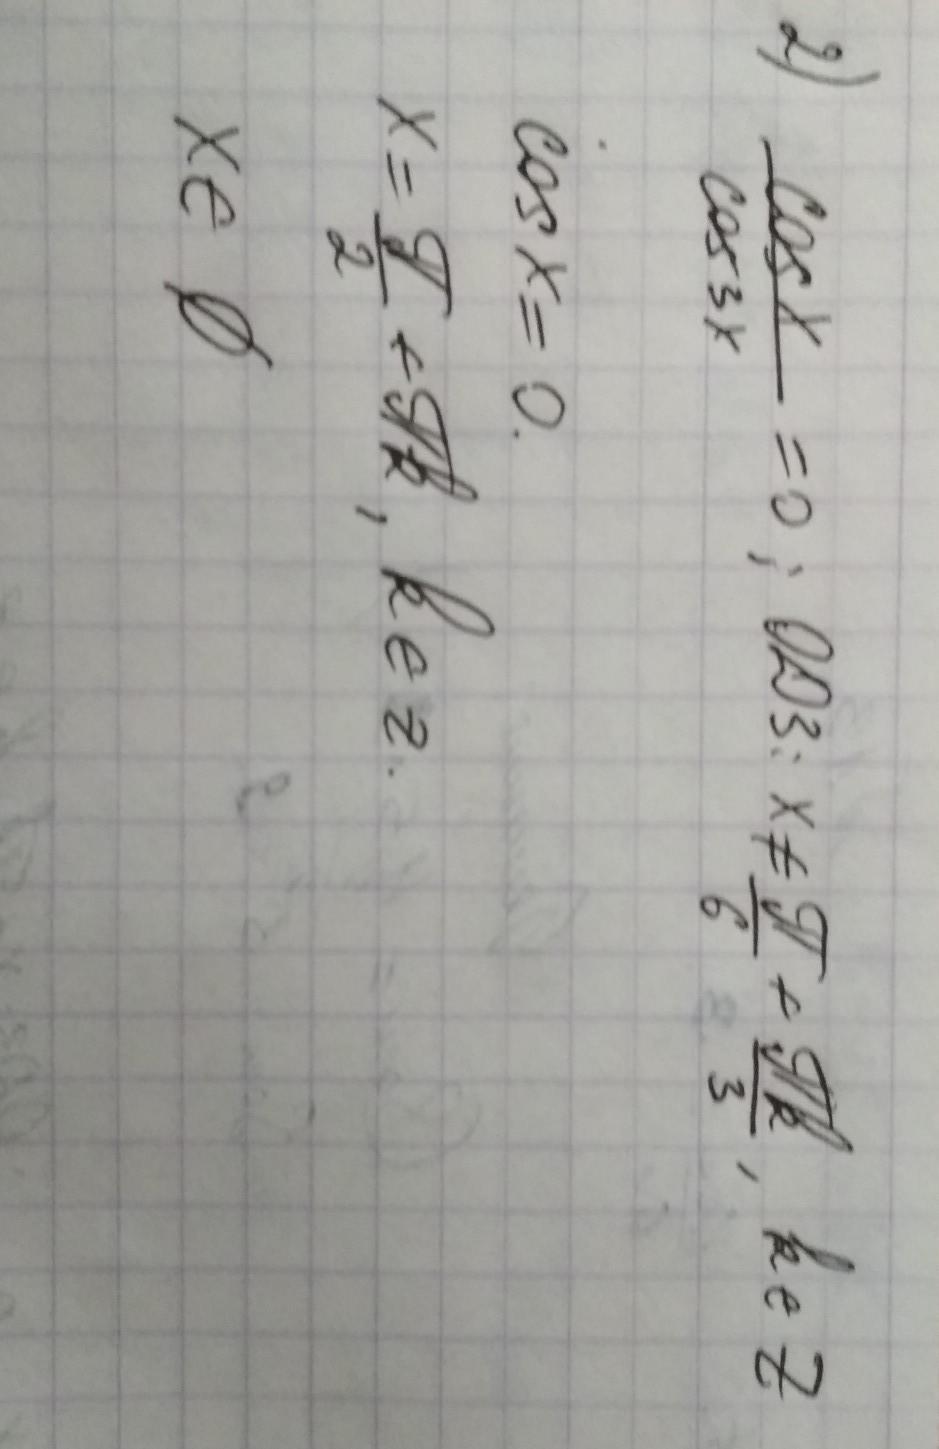 2) cos x / cos 3x = 0; ОДЗ: x ≠ π/6 + πk/3, k ∈ Z
cos x = 0.
x = π/2 + πk, k ∈ z.
x ∈ ∅